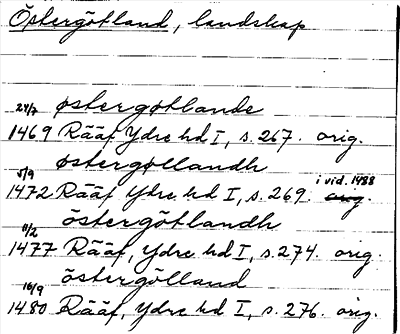 Östergötland, landskap
østergøtlande
24/7
1469 Rääf Ydre hd I, s. 267. orig.
østergøllandh
5/9 i vid. 1488
1472 Rääf Ydre hd I, s. 269. orig.
östergötlandh
11/2
1477 Rääf, Ydre hd I, s. 274. orig.
östergölland
16/9
1480 Rääf, Ydre hd I, s. 276. orig.